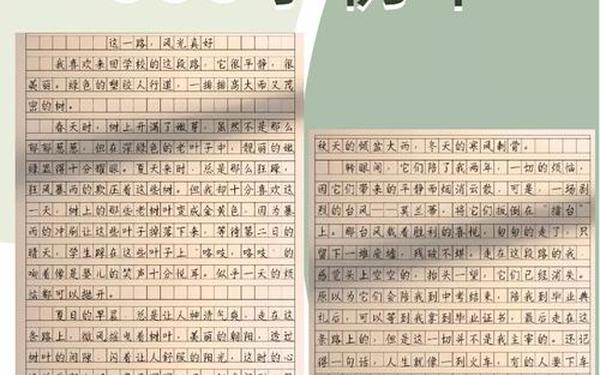 这一路，风光真好
我喜欢来回学校的这段路，它很平静，很
美丽。绿色的塑胶人行道，一排排高大而又茂
密的树。
春天时，树上开满了嫩芽，虽然不是那么
郁郁葱葱，但在深绿色的老叶子中，靓丽的嫩
绿显得十分耀眼。夏天来时，总是那么狂躁，
狂风暴雨的欺压着这些树。但我却十分喜欢这
一天，树上的那些老树叶变成金黄色，因为暴
雨的冲刷让这些叶子掉落下来，等待第二日的
晴天，学生踩在这些叶子上“咯吱，咯吱”的
响着像是婴儿的笑声十分悦耳。似乎一天的烦
恼都可以抛开。
夏日的早晨，总是让人神清气爽，走在这
条路上，微风摇曳着树叶，美丽的朝阳，透过
树叶的间隙，闪着让人舒服的阳光，这时的心
秋天的倾盆大雨，冬天的寒风刺骨。
转眼间，它们陪了我两年，一切的烦恼，
因它们带来的平静而烟消云散，可是，一场剧
烈的台风——莫兰蒂，将它们扳倒在“擂台”
上。那台风戴着胜利的喜悦，匆匆的走了，只
留下一堆废墟，残破不堪。走在这段路的我，
感觉头上空空的，抬头一望，它们已经消失。
原以为它们会陪我到中考结束，陪我到毕业典
礼后，可以等到我拿到毕业证书，最后走在这
条路上的，但是这一切斗不是我主宰的。还记
得一句话，人生就像一列火车，有的人要下车